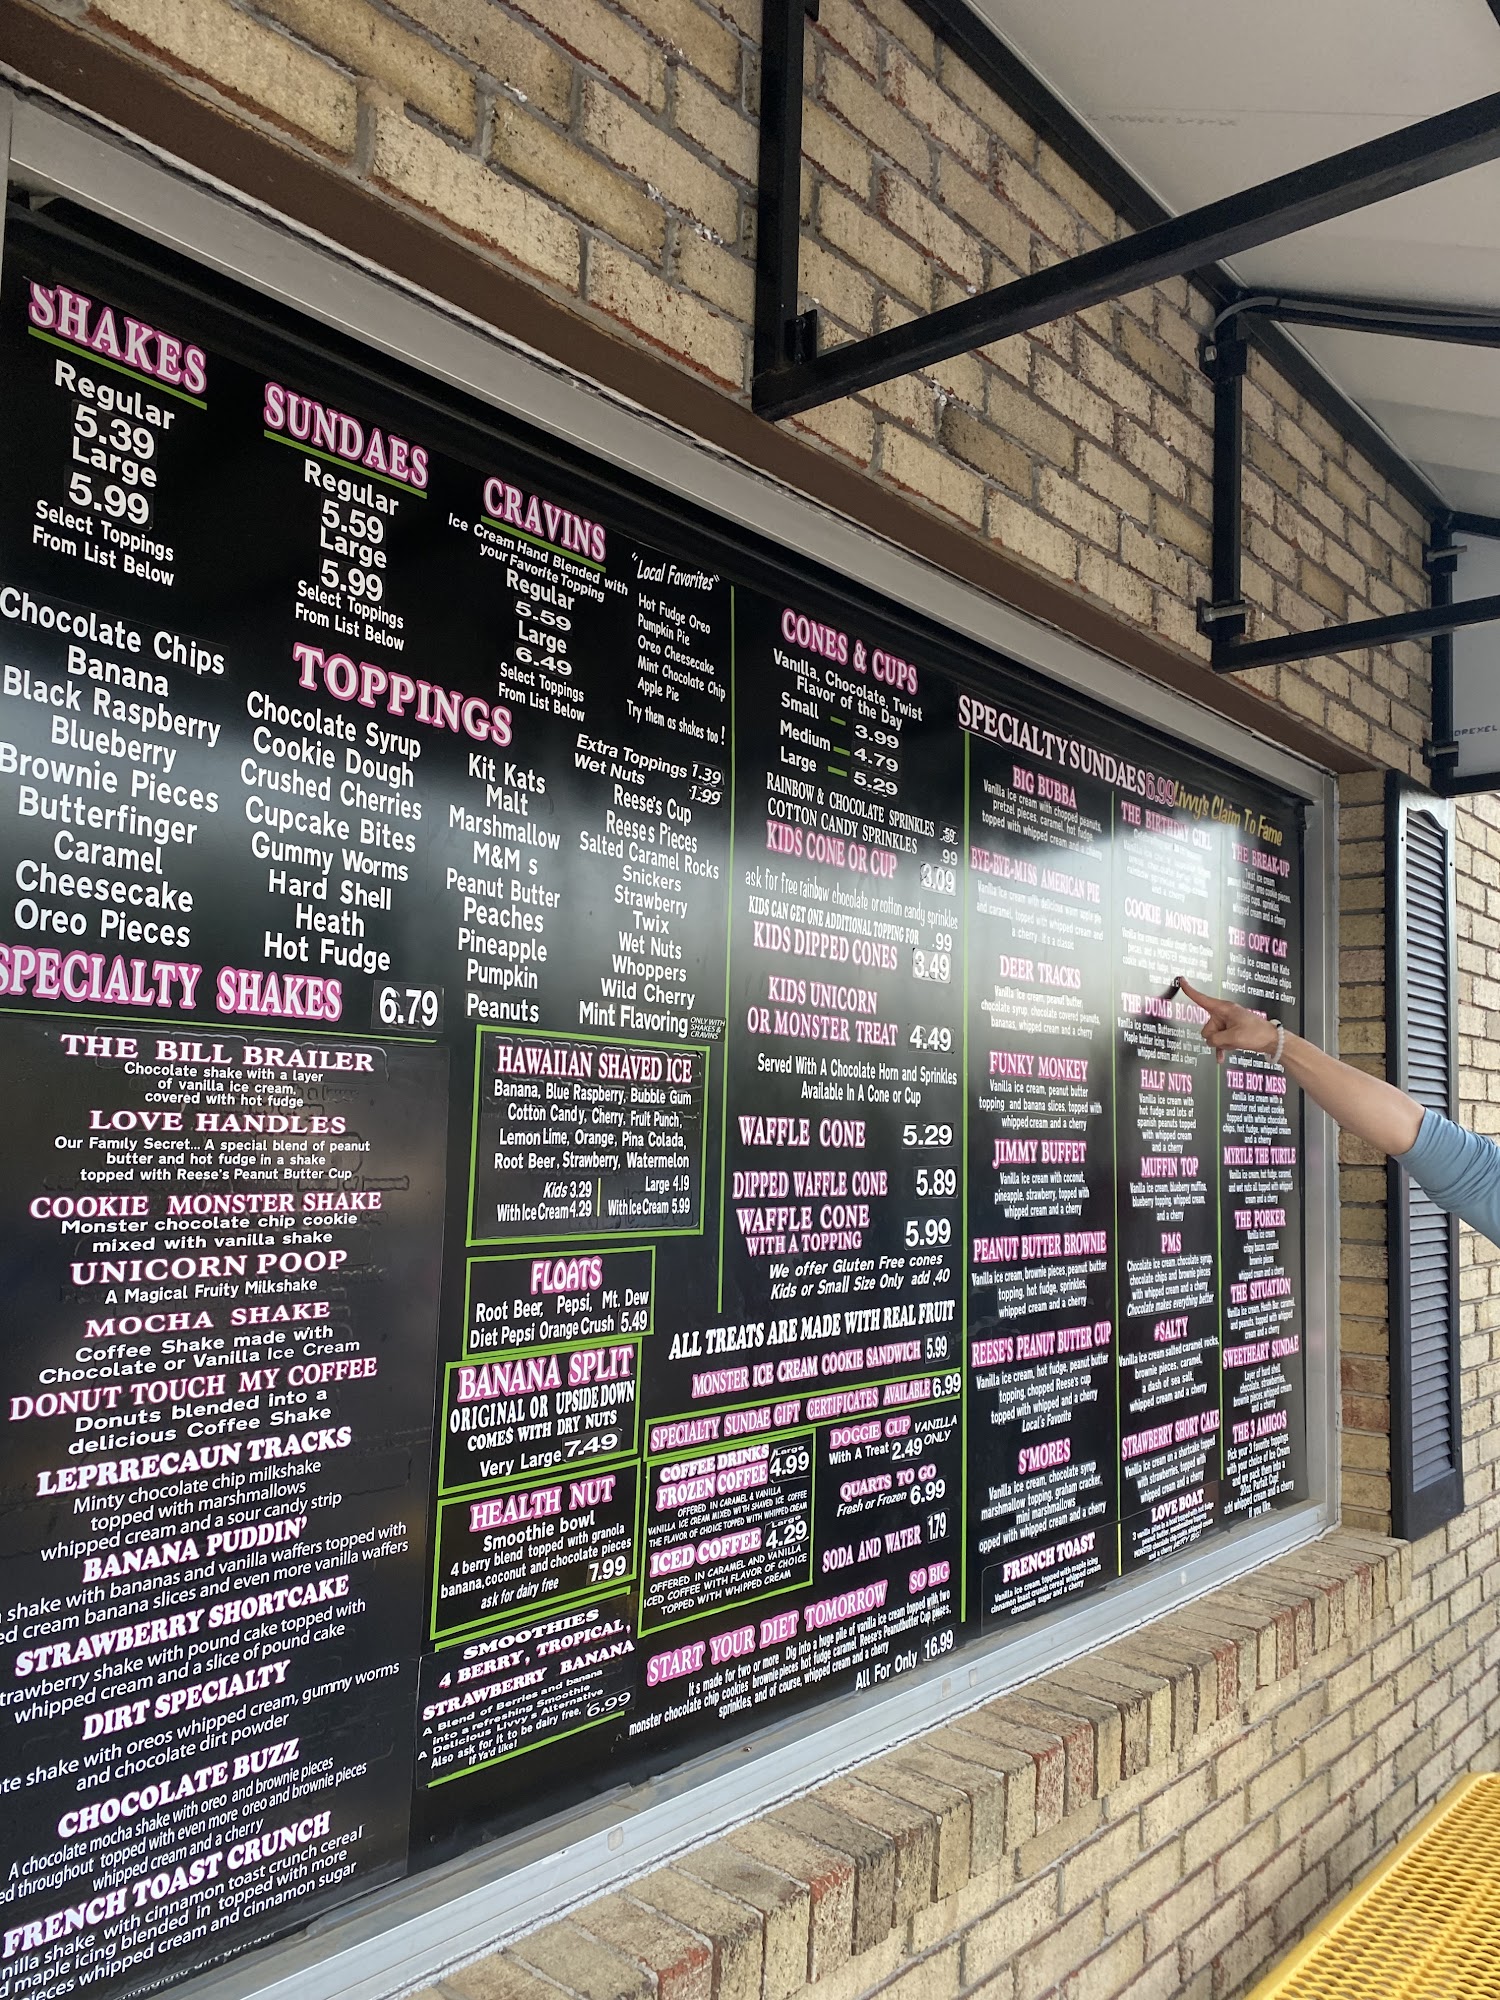 SHAKES
Regular
5.39
Large
5.99
Select Toppings
From List Below
SUNDAES
Regular
5.59
Large
5.99
Select Toppings
From List Below
CRAVINS
Ice Cream Hand Blended with
your Favorite Topping
Regular
5.59
Large
6.49
Select Toppings
From List Below
"Local Favorites"
Hot Fudge Oreo
Pumpkin Pie
Oreo Cheesecake
Mint Chocolate Chip
Apple Pie
Try them as shakes too!
TOPPINGS
Extra Toppings 1.39
Wet Nuts 1.99
Chocolate Chips
Banana
Black Raspberry
Blueberry
Brownie Pieces
Butterfinger
Caramel
Cheesecake
Oreo Pieces
Chocolate Syrup
Cookie Dough
Crushed Cherries
Cupcake Bites
Gummy Worms
Hard Shell
Heath
Hot Fudge
Kit Kats
Malt
Marshmallow
M&M s
Peanut Butter
Peaches
Pineapple
Pumpkin
Peanuts
Reese's Cup
Reese s Pieces
Salted Caramel Rocks
Snickers
Strawberry
Twix
Wet Nuts
Whoppers
Wild Cherry
Mint Flavoring ONLY WITH SHAKES & CRAVINS
SPECIALTY SHAKES 6.79
THE BILL BRAILER
Chocolate shake with a layer
of vanilla ice cream,
covered with hot fudge
LOVE HANDLES
Our Family Secret... A special blend of peanut
butter and hot fudge in a shake
topped with Reese's Peanut Butter Cup
COOKIE MONSTER SHAKE
Monster chocolate chip cookie
mixed with vanilla shake
UNICORN POOP
A Magical Fruity Milkshake
MOCHA SHAKE
Coffee Shake made with
Chocolate or Vanilla Ice Cream
DONUT TOUCH MY COFFEE
Donuts blended into a
delicious Coffee Shake
LEPRRECAUN TRACKS
Minty chocolate chip milkshake
topped with marshmallows
whipped cream and a sour candy strip
BANANA PUDDIN'
shake with bananas and vanilla waffers topped with
cream banana slices and even more vanilla waffers
STRAWBERRY SHORTCAKE
shake with pound cake topped with
whipped cream and a slice of pound cake
DIRT SPECIALTY
shake with oreos whipped cream, gummy worms
and chocolate dirt powder
CHOCOLATE BUZZ
A chocolate mocha shake with oreo and brownie pieces
throughout topped with even more oreo and brownie pieces
whipped cream and a cherry
FRENCH TOAST CRUNCH
shake with cinnamon toast crunch cereal
maple icing blended in topped with more
whipped cream and cinnamon sugar
HAWAIIAN SHAVED ICE
Banana, Blue Raspberry, Bubble Gum
Cotton Candy, Cherry, Fruit Punch,
Lemon Lime, Orange, Pina Colada,
Root Beer, Strawberry, Watermelon
Kids 3.29
With Ice Cream 4.29
Large 4.19
With Ice Cream 5.99
FLOATS
Root Beer, Pepsi, Mt. Dew
Diet Pepsi Orange Crush 5.49
BANANA SPLIT
ORIGINAL OR UPSIDE DOWN
COMES WITH DRY NUTS
Very Large 7.49
HEALTH NUT
Smoothie bowl
4 berry blend topped with granola
banana, coconut and chocolate pieces
ask for dairy free 7.99
SMOOTHIES
4 BERRY, TROPICAL,
STRAWBERRY BANANA
A Blend of Berries and banana
into a refreshing Smoothie
A Delicious Livvy s Alternative
Also ask for it to be dairy free,
If Ya'd like! 6.99
CONES & CUPS
Vanilla, Chocolate, Twist
Flavor of the Day
Small 3.99
Medium 4.79
Large 5.29
RAINBOW & CHOCOLATE SPRINKLES .59
COTTON CANDY SPRINKLES .99
KIDS CONE OR CUP 3.09
ask for free rainbow chocolate or cotton candy sprinkles
KIDS CAN GET ONE ADDITIONAL TOPPING FOR .99
KIDS DIPPED CONES 3.49
KIDS UNICORN
OR MONSTER TREAT 4.49
Served With A Chocolate Horn and Sprinkles
Available In A Cone or Cup
WAFFLE CONE 5.29
DIPPED WAFFLE CONE 5.89
WAFFLE CONE
WITH A TOPPING 5.99
We offer Gluten Free cones
Kids or Small Size Only add .40
ALL TREATS ARE MADE WITH REAL FRUIT
MONSTER ICE CREAM COOKIE SANDWICH 5.99
SPECIALTY SUNDAE GIFT CERTIFICATES AVAILABLE 6.99
COFFEE DRINKS
FROZEN COFFEE Large 4.99
OFFERED IN CARAMEL & VANILLA
VANILLA ICE CREAM MIXED WITH SHAVED ICE COFFEE
THE FLAVOR OF CHOICE TOPPED WITH WHIPPED CREAM
ICED COFFEE Large 4.29
OFFERED IN CARAMEL AND VANILLA
ICED COFFEE WITH FLAVOR OF CHOICE
TOPPED WITH WHIPPED CREAM
DOGGIE CUP VANILLA ONLY
With A Treat 2.49
QUARTS TO GO
Fresh or Frozen 6.99
SODA AND WATER 1.79
START YOUR DIET TOMORROW SO BIG
It's made for two or more Dig into a huge pile of vanilla ice cream topped with two
monster chocolate chip cookies brownie pieces hot fudge caramel Reese's Peanutbutter Cup pieces,
sprinkles, and of course, whipped cream and a cherry
All For Only 16.99
SPECIALTY SUNDAES 6.99 Livvy's Claim To Fame
BIG BUBBA
Vanilla ice cream with chopped peanuts,
pretzel pieces, caramel, hot fudge
topped with whipped cream and a cherry
BYE-BYE-MISS AMERICAN PIE
Vanilla ice cream with delicious warm apple pie
and caramel, topped with whipped cream and
a cherry it's a classic
DEER TRACKS
Vanilla ice cream, peanut butter,
chocolate syrup, chocolate covered peanuts,
bananas, whipped cream and a cherry
FUNKY MONKEY
Vanilla ice cream, peanut butter
topping and banana slices, topped with
whipped cream and a cherry
JIMMY BUFFET
Vanilla ice cream with coconut,
pineapple, strawberry, topped with
whipped cream and a cherry
PEANUT BUTTER BROWNIE
Vanilla ice cream, brownie pieces, peanut butter
topping, hot fudge, sprinkles,
whipped cream and a cherry
REESE'S PEANUT BUTTER CUP
Vanilla ice cream, hot fudge, peanut butter
topping, chopped Reese's cup
topped with whipped cream and a cherry
Local's Favorite
S'MORES
Vanilla ice cream, chocolate syrup
marshmallow topping, graham cracker,
mini marshmallows
topped with whipped cream and a cherry
FRENCH TOAST
Vanilla ice cream, topped with maple icing
cinnamon toast crunch cereal whipped cream
cinnamon sugar and a cherry
THE BIRTHDAY GIRL
COOKIE MONSTER
Vanilla ice cream, cookie dough Oreo Cookie
pieces, and a MONSTER chocolate chip
cookie with hot fudge, topped with whipped
THE DUMB BLONDE
Vanilla ice cream, Butterscotch Blondie,
Maple butter icing, topped with wet nuts
whipped cream and a cherry
HALF NUTS
Vanilla ice cream with
hot fudge and lots of
spanish peanuts topped
with whipped cream
and a cherry
MUFFIN TOP
Vanilla ice cream, blueberry muffins,
blueberry topping, whipped cream,
and a cherry
PMS
Chocolate ice cream, chocolate syrup,
chocolate chips and brownie pieces
with whipped cream and a cherry
Chocolate makes everything better
#SALTY
Vanilla ice cream salted caramel rocks,
brownie pieces, caramel,
a dash of sea salt,
whipped cream and a cherry
STRAWBERRY SHORT CAKE
Vanilla ice cream on a shortcake topped
with strawberries, topped with
whipped cream and a cherry
LOVE BOAT
THE BREAK-UP
Twist ice cream
peanut butter, oreo cookie pieces,
reeses cups, sprinkles,
whipped cream and a cherry
THE COPY CAT
Vanilla ice cream Kit Kats
hot fudge, chocolate chips
whipped cream and a cherry
with whipped cream
and a cherry
THE HOT MESS
Vanilla ice cream with a
monster red velvet cookie
topped with white chocolate
chips, hot fudge, whipped cream
and a cherry
MYRTLE THE TURTLE
Vanilla ice cream, hot fudge, caramel,
and wet nuts all topped with whipped
cream and a cherry
THE PORKER
Vanilla ice cream
crispy bacon, caramel
brownie pieces
whipped cream and a cherry
THE SITUATION
Vanilla ice cream, Heath Bar, caramel,
and peanuts, topped with whipped
cream and a cherry
SWEETHEART SUNDAE
Layer of hard shell
chocolate, strawberries,
brownie pieces whipped cream
and a cherry
THE 3 AMIGOS
Pick your 3 favorite toppings
with your choice of Ice Cream
and we pack them into a
20oz. Parfait Cup!
add whipped cream and a cherry
if you like
DREXEL